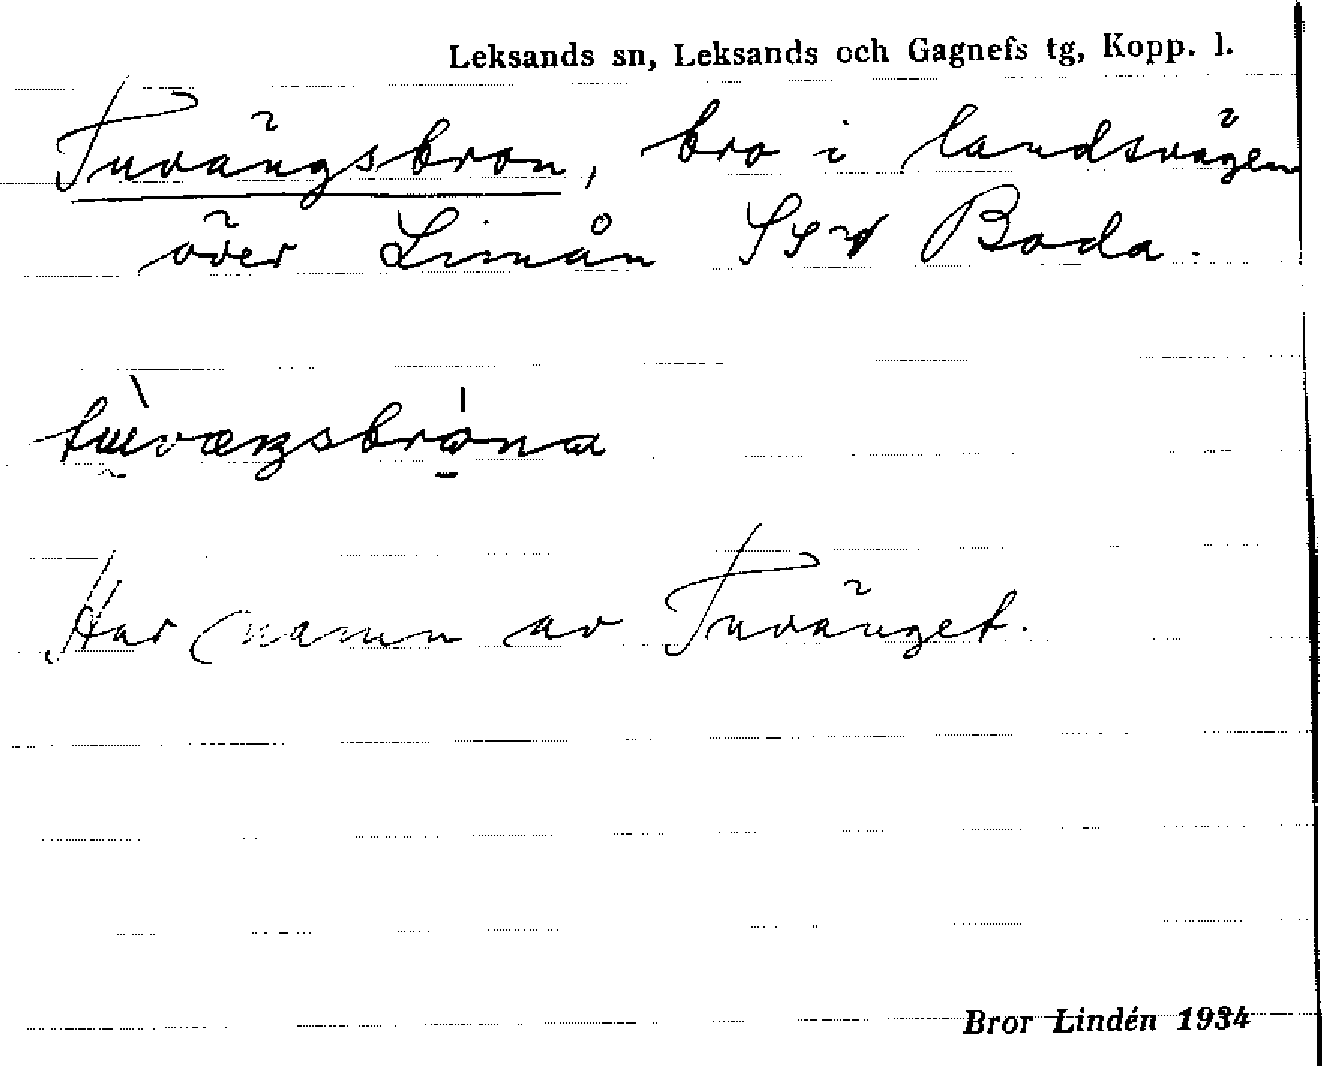 Leksands sn, Leksands och Gagnefs tg, Kopp. l.
Tuvängsbron, bro i landsvägen
över Limån SSv Boda.
Har namn av Tuvänget.
Bror Lindén 1934